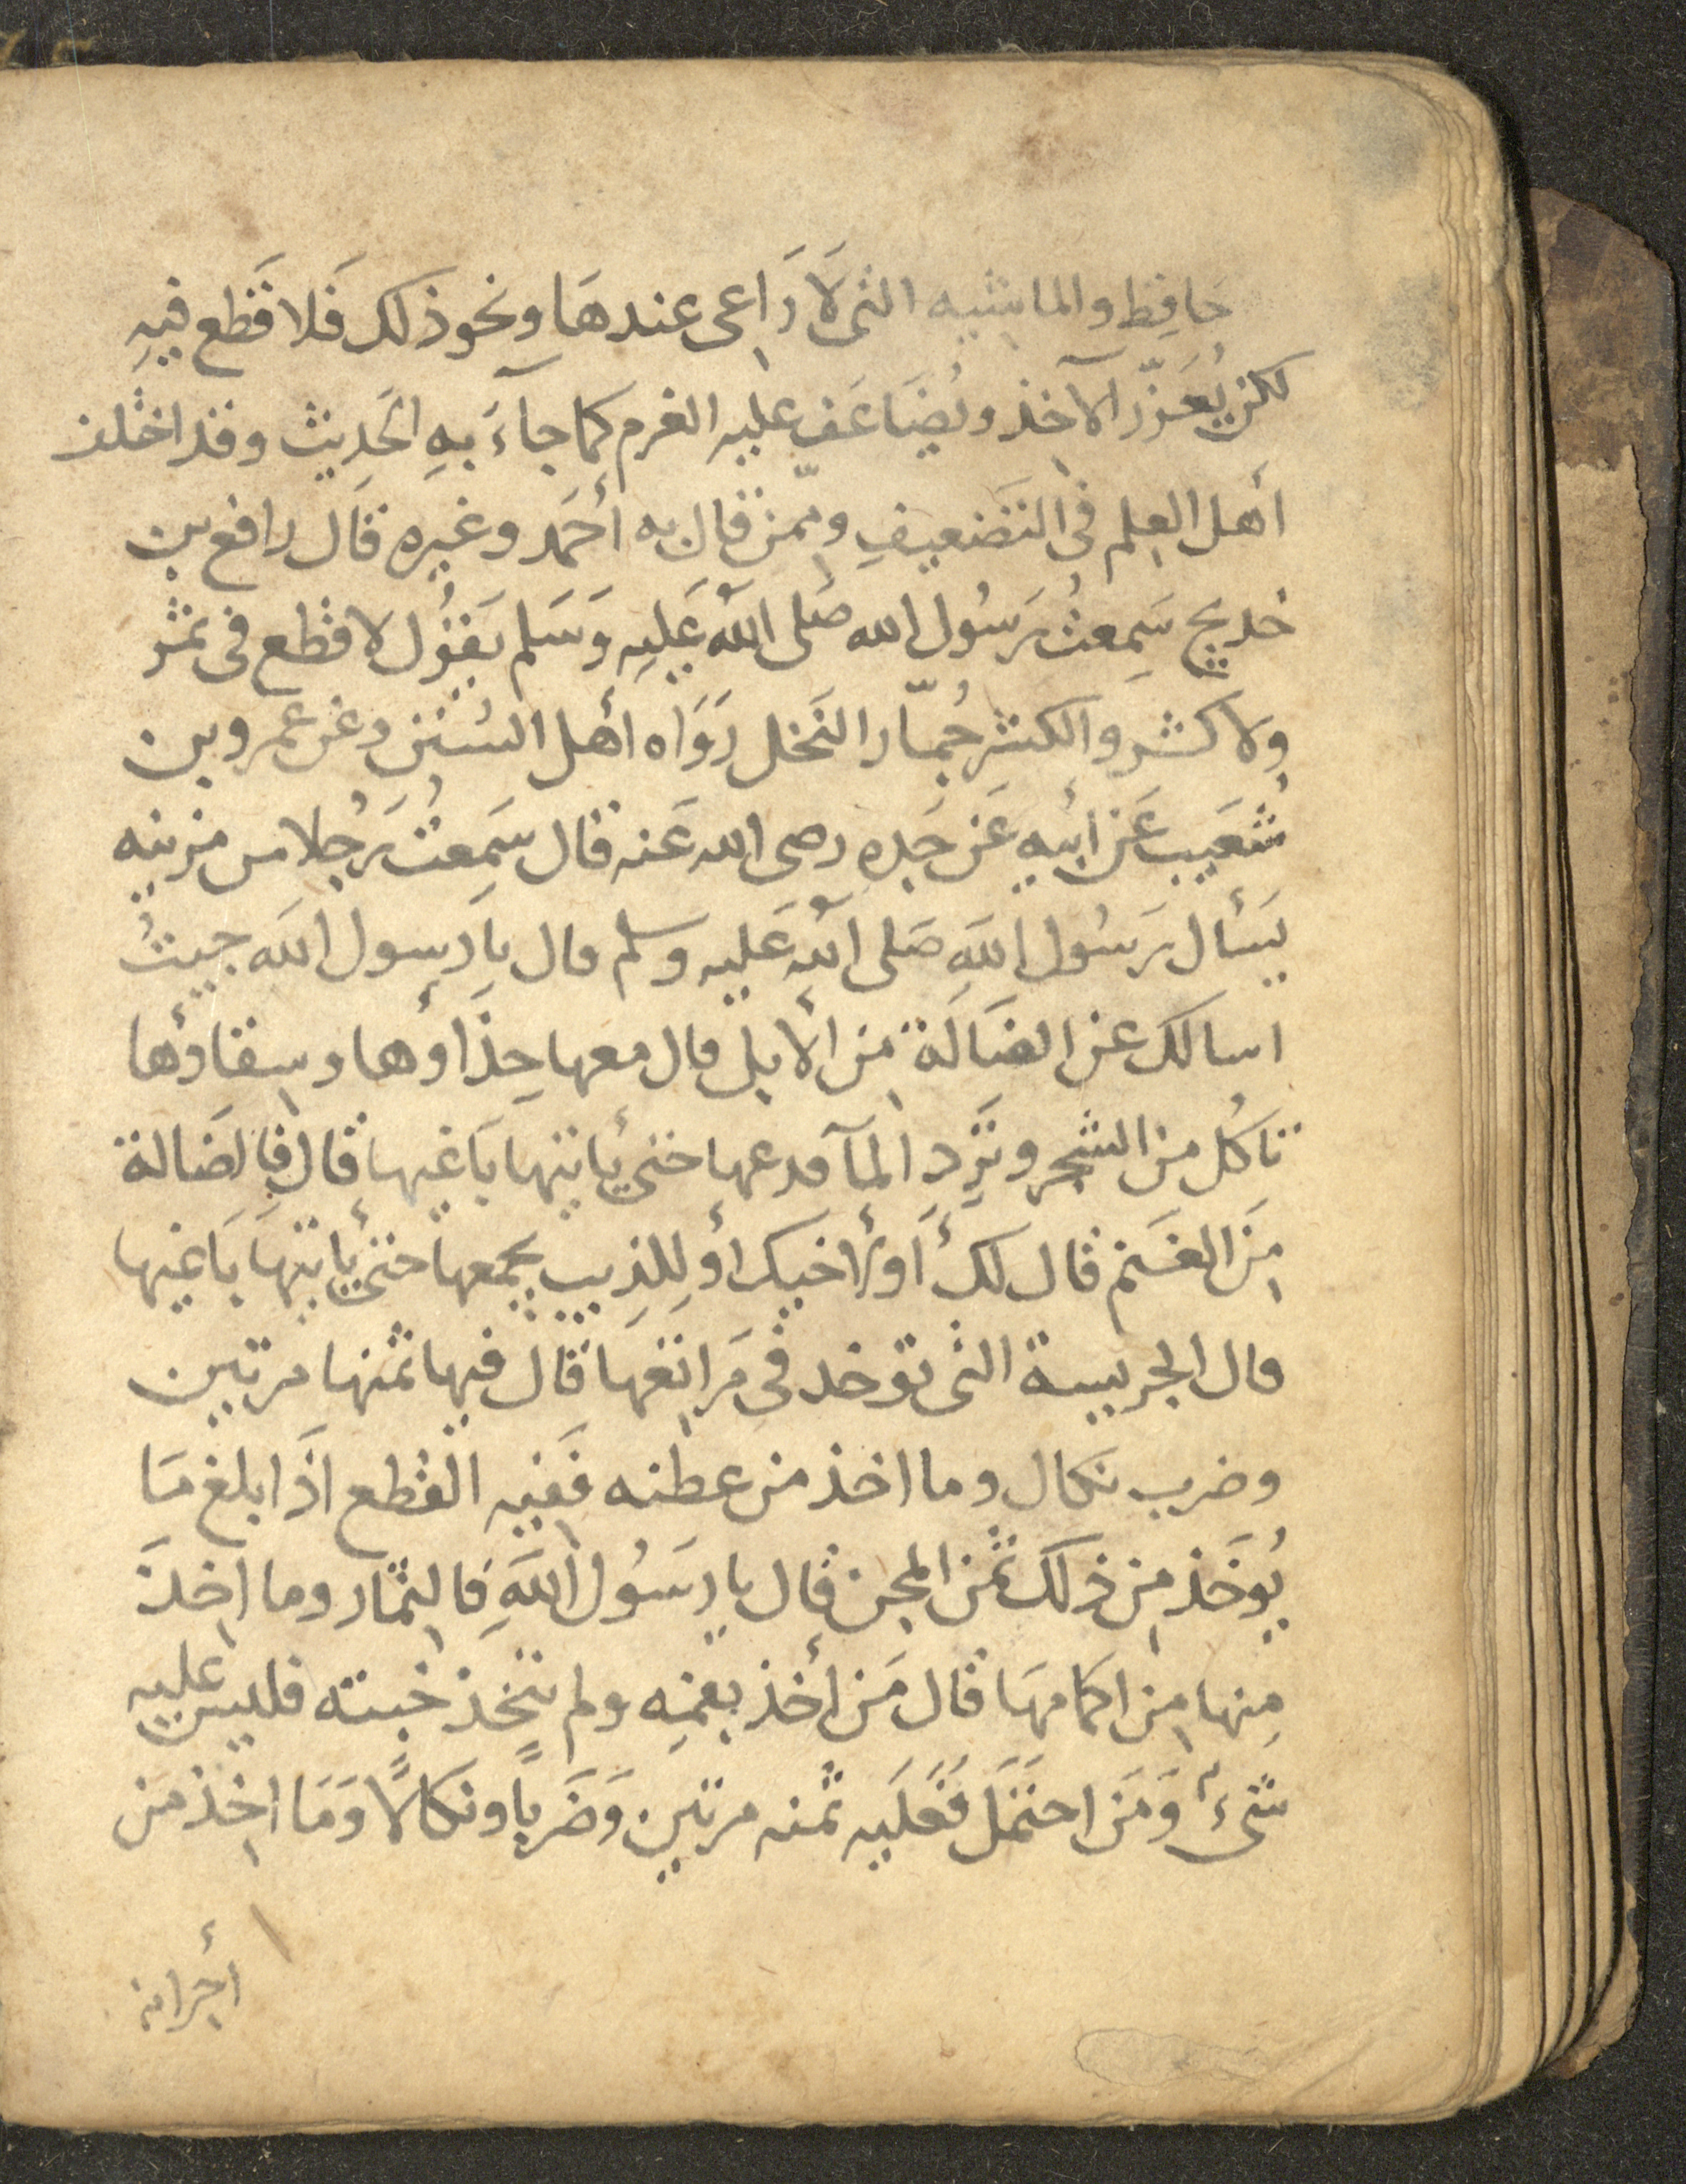 حَافِظ والماشيه التى لَا رَاعى عندهَا ونحو ذلك فَلا قَطع فيهِ
لكن يُعَزّر الآخذ ويُضَاعَف عليه الغرم كما جآءَ بهِ الحَدِيث وقد اختلف
أهل العِلم فى التَضعيفِ وممّن قال به أحمَد وغيره قال رافع بن
خديج سَمِعتُ رَسُول الله صَلى اللهُ عَليهِ وَسَلم يَقُول لا قطع فى ثمر
ولا كثر والكثر جُمّار النَخل رَوَاه أهل السُنَن وعَن عمرو بن
شُعَيب عَن أبيهِ عَن جَدهِ رضى الله عَنه قال سَمِعتُ رَجُلا من مزينه
يَسأل رَسُول اللهِ صَلى اللهِ عَليه وسلم قال يا رسول الله جيتُ
اسالك عن الضَالَة مِن الأبل قال معها حِذَاؤها وسِقاؤها
تاكُل من الشجر وتَرِد المآ فدعها حتى يأتيها بَاغيها قال فالضَالة
مِنَ الغَنم قال لك أَو لأخيك أو لِلذِيب يجمعها حتى يأتيهَا بَاغيها
قال الجريسة التى توخد فى مَرَاتِعهَا قَال فيها ثمنها مرتين
وضرب نكال وما اخذ من عطنه فَفيه القطع اذَا بلغ مَا
يُوخَذ مِن ذلك ثمن المجن قال يا رسُول اللهِ فالثمار وما اخِذَ
مِنها مِن اكمامهَا قال مَن أخذ بفمِهِ ولم يتخذ خبنته فليس عليه
شىءٌ وَمَن احتَمَل فَعَليه ثمنه مرتين وَضَربًا ونكالًا وَمَا اخِذ من
أجرانه